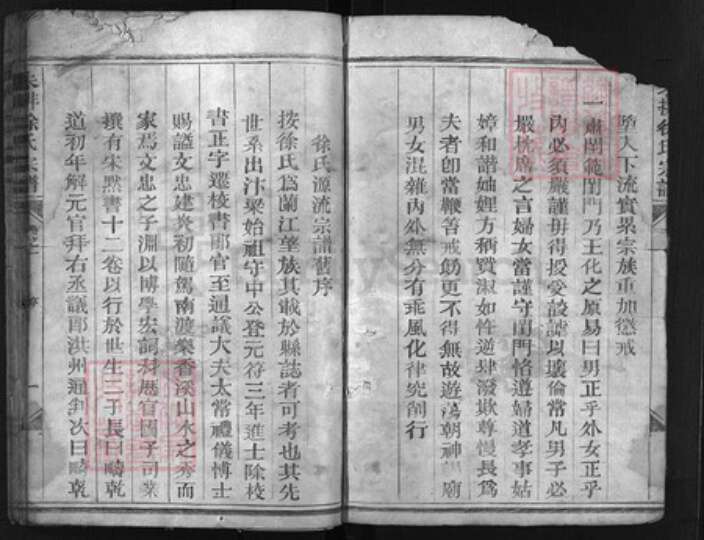 墮人下流實累宗族重加懲戒
一肅閨範閨門乃王化之原易曰男正乎外女正乎
內必須嚴謹毋得授受設謔以壞倫常凡男子必
嚴枕席之言婦女當謹守閨門恪遵婦道孝事姑
嫜和諧妯娌方稱賢淑如性逆肆潑欺尊慢長爲
夫者卽當鞭笞戒飭更不得無故遊蕩朝神 廟
男女混雜內外無分有乖風化律究削行
徐氏源流宗譜舊序
按徐氏爲蘭江望族其載於縣誌者可考也其先
世系出汴梁始祖守中公登元符三年進士除校
書正字遷校書郞官至通議大夫太常禮儀博士
賜諡文忠建炎初隨駕南渡樂香溪山水之秀而
家焉文忠之子淵以博學宏詞科歷官國子司業
撰有宋熙書十二卷以行於世生三子長曰疇乾
道初年解元官拜右丞議郞洪州通判次曰疇乾
徐氏宗譜